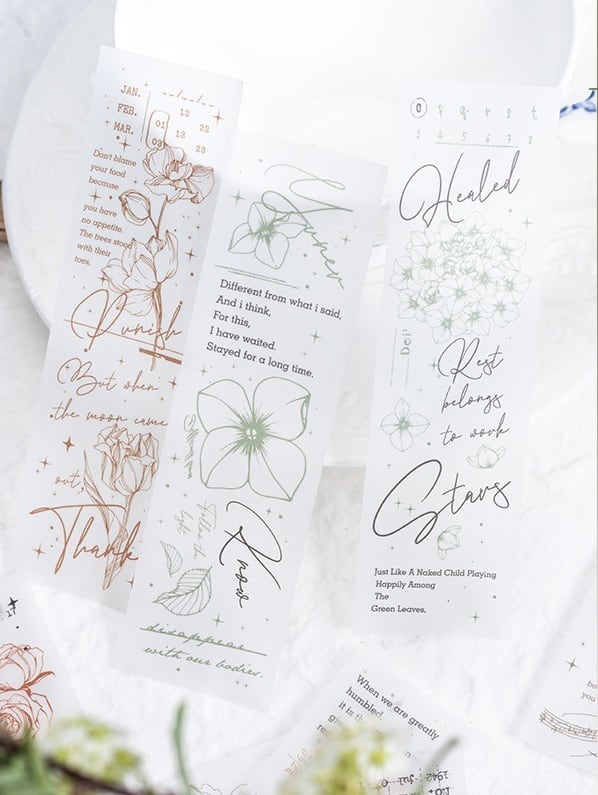 JAN.
FEB.
MAR.
12 22
01 13 23
03
Don't blame
your food
because
you have
no appetite.
The trees stood
with their
toes.
Punish
But when
the moon came
out,
Thank
Different from what i said,
And i think,
For this,
I have waited.
Stayed for a long time.
Know
disappear
with our bodies.
o p q r s t
3 4 5 6 7 8
Healed
Rest
belongs
to work
Stars
Just Like A Naked Child Playing
Happily Among
The
Green Leaves,
When we are greatly
humbled,
it is th
great
37.60
1942 Jul 0
NO
bo
you